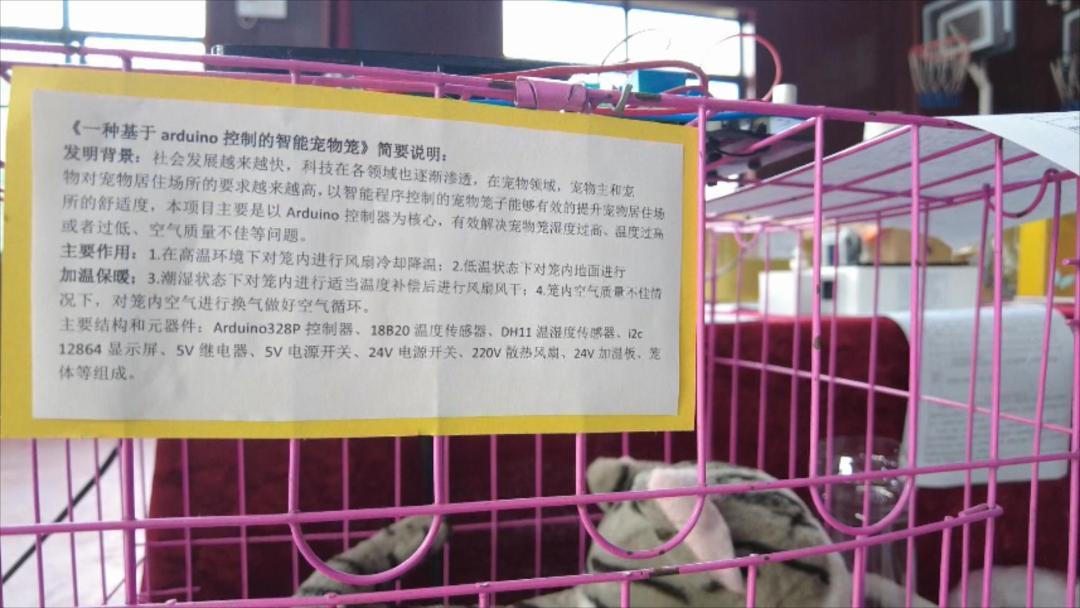 《一种基于 arduino 控制的智能宠物笼》简要说明：
发明背景：社会发展越来越快，科技在各领域也逐渐渗透，在宠物领域，宠物主和宠
物对宠物居住场所的要求越来越高，以智能程序控制的宠物笼子能够有效的提升宠物居住场
所的舒适度，本项目主要是以 Arduino 控制器为核心，有效解决宠物笼湿度过高、温度过高
或者过低、空气质量不佳等问题。
主要作用：1.在高温环境下对笼内进行风扇冷却降温；2.低温状态下对笼内地面进行
加温保暖；3.潮湿状态下对笼内进行适当温度补偿后进行风扇风干；4.笼内空气质量不佳情
况下，对笼内空气进行换气做好空气循环。
主要结构和元器件：Arduino328P 控制器、18B20 温度传感器、DH11 温湿度传感器、i2c
12864 显示屏、5V 继电器、5V 电源开关、24V 电源开关、220V 散热风扇、24V 加温板、笼
体等组成。